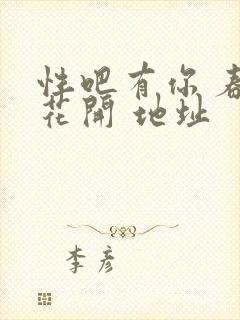 性吧有你 春
花開 地址
李彦